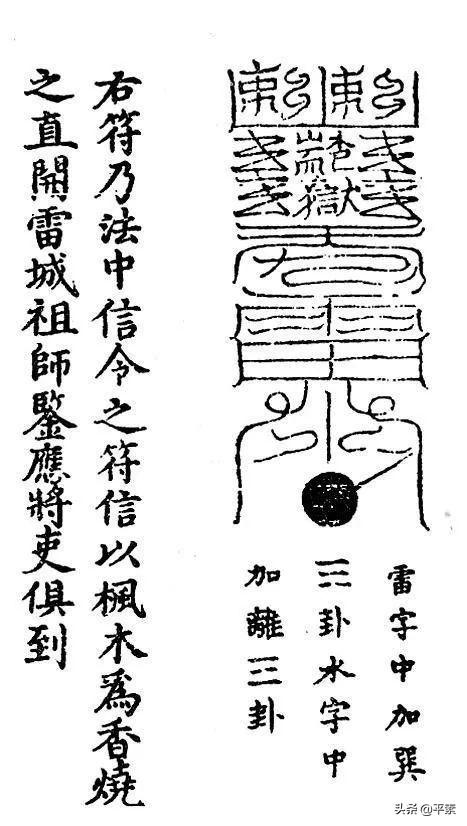 雷字中加巽
☴卦水字中
加離☲卦
右符乃法中信令之符信以楓木爲香燒
之直開雷城祖師鑒應將吏俱到
头条 @平素